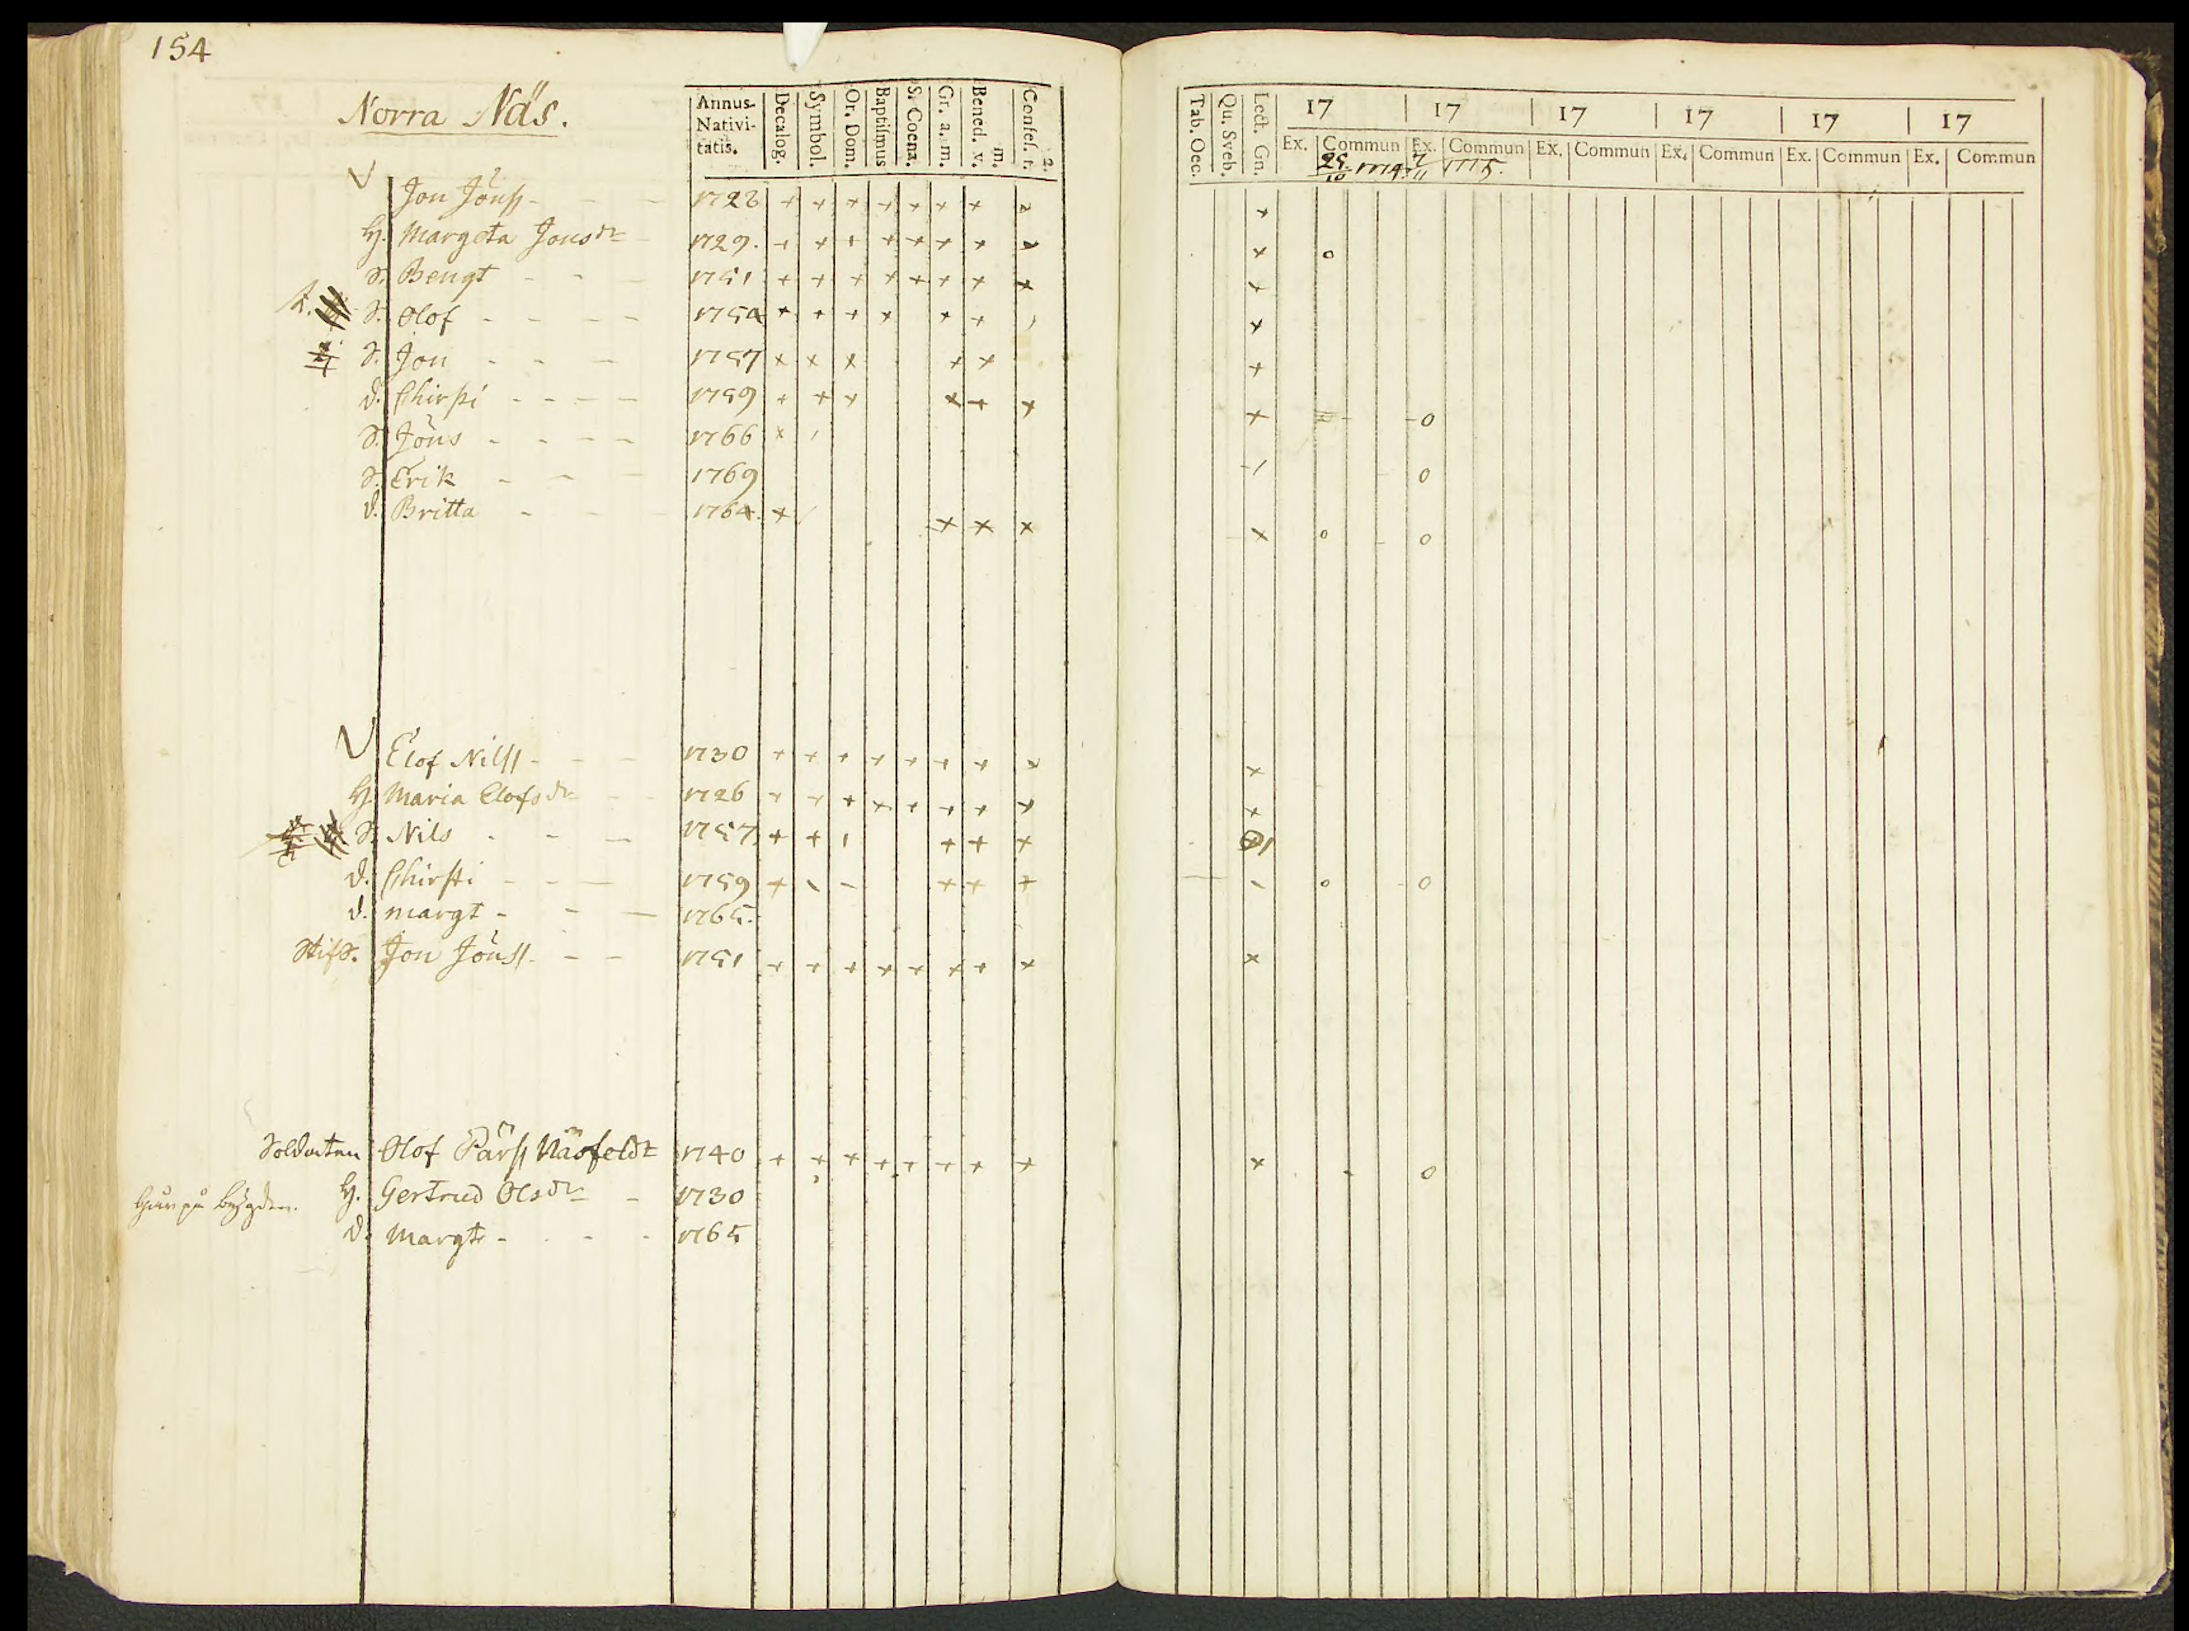 154
Norra Näs.
Annus Nativitatis. Decalog. Symbol. Or. Dom. Baptismus S. Coena. Gr. a. m. Bened. v. m. Confes. t. 2.
Jon Jönss - - - 1728 + + + + + + + +
H. Margeta Jonsdr - 1729. + + + + + + + +
S. Bengt - - - 1751 + + + + + + + +
S. Olof - - - - 1754 + + + + + +
S. Jon - - - 1757 + + + + +
d. Chirsti - - - - 1759 + + + + + +
S. Jöns - - - - 1766 +
S. Erik - - - 1769
d. Britta - - - 1764. + + + +
Elof Nilss - - - 1730 + + + + + + + +
H. Maria Elofsdr - - 1726 + + + + + + + +
S. Nils - - - 1757 + + + + +
d. Chirsti - - - 1759 + - - + + +
d. margt - - - 1765.
StifS. Jon Jönss - - - 1751 + + + + + + + +
Soldaten Olof Pärss Näsfeldt 1740 + + + + + + + +
Går på bygden. H. Gertrud Olsdr - 1730
d. Margt - - - - 1765
Tab. Oec. Qu. Sveb. Lect. Gn. 17 17 17 17 17 17
Ex. Commun Ex. Commun Ex. Commun Ex. Commun Ex. Commun Ex. Commun
1774. 1775.
+
+ o
+
+
+
+ - o
o
+ o - o
+
+
- o - o
+
+ - o